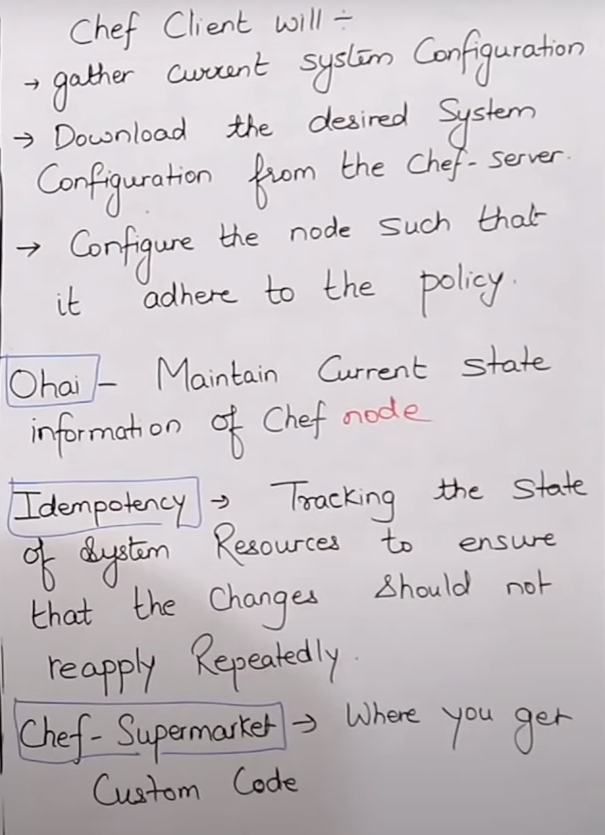 Chef Client will ÷
→ gather current system Configuration
→ Download the desired System
Configuration from the Chef-server.
→ Configure the node such that
it adhere to the policy.
Ohai - Maintain Current state
information of Chef node
Idempotency → Tracking the state
of System Resources to ensure
that the Changes should not
reapply Repeatedly.
Chef-Supermarket → Where you get
Custom Code